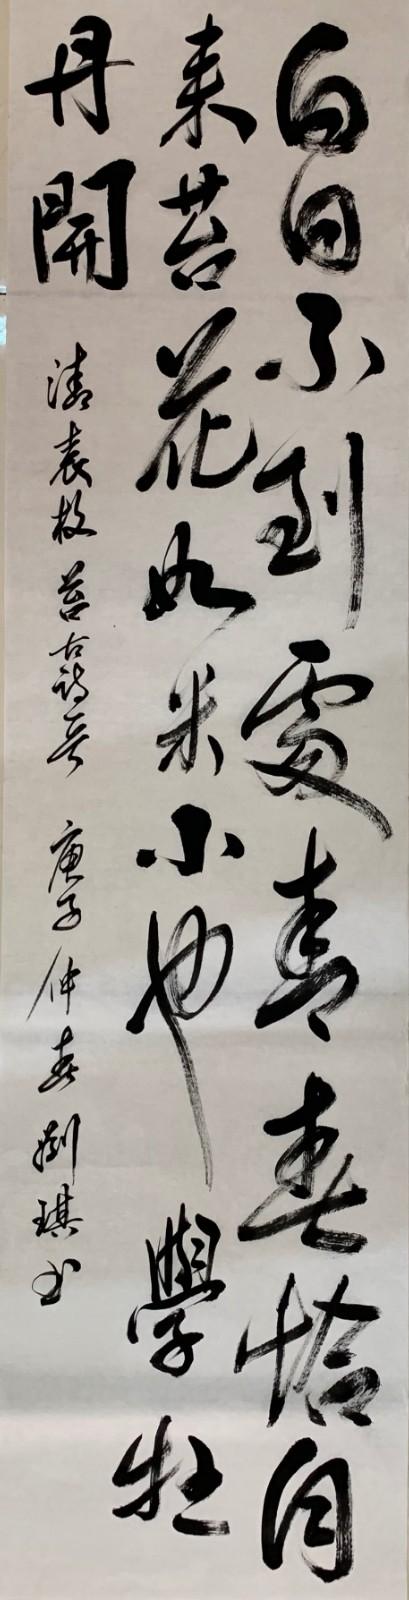 白日不到處青春恰自
来苔花如米小也學牡
丹開
清袁枚苔古詩吾 庚子仲春劉琪书